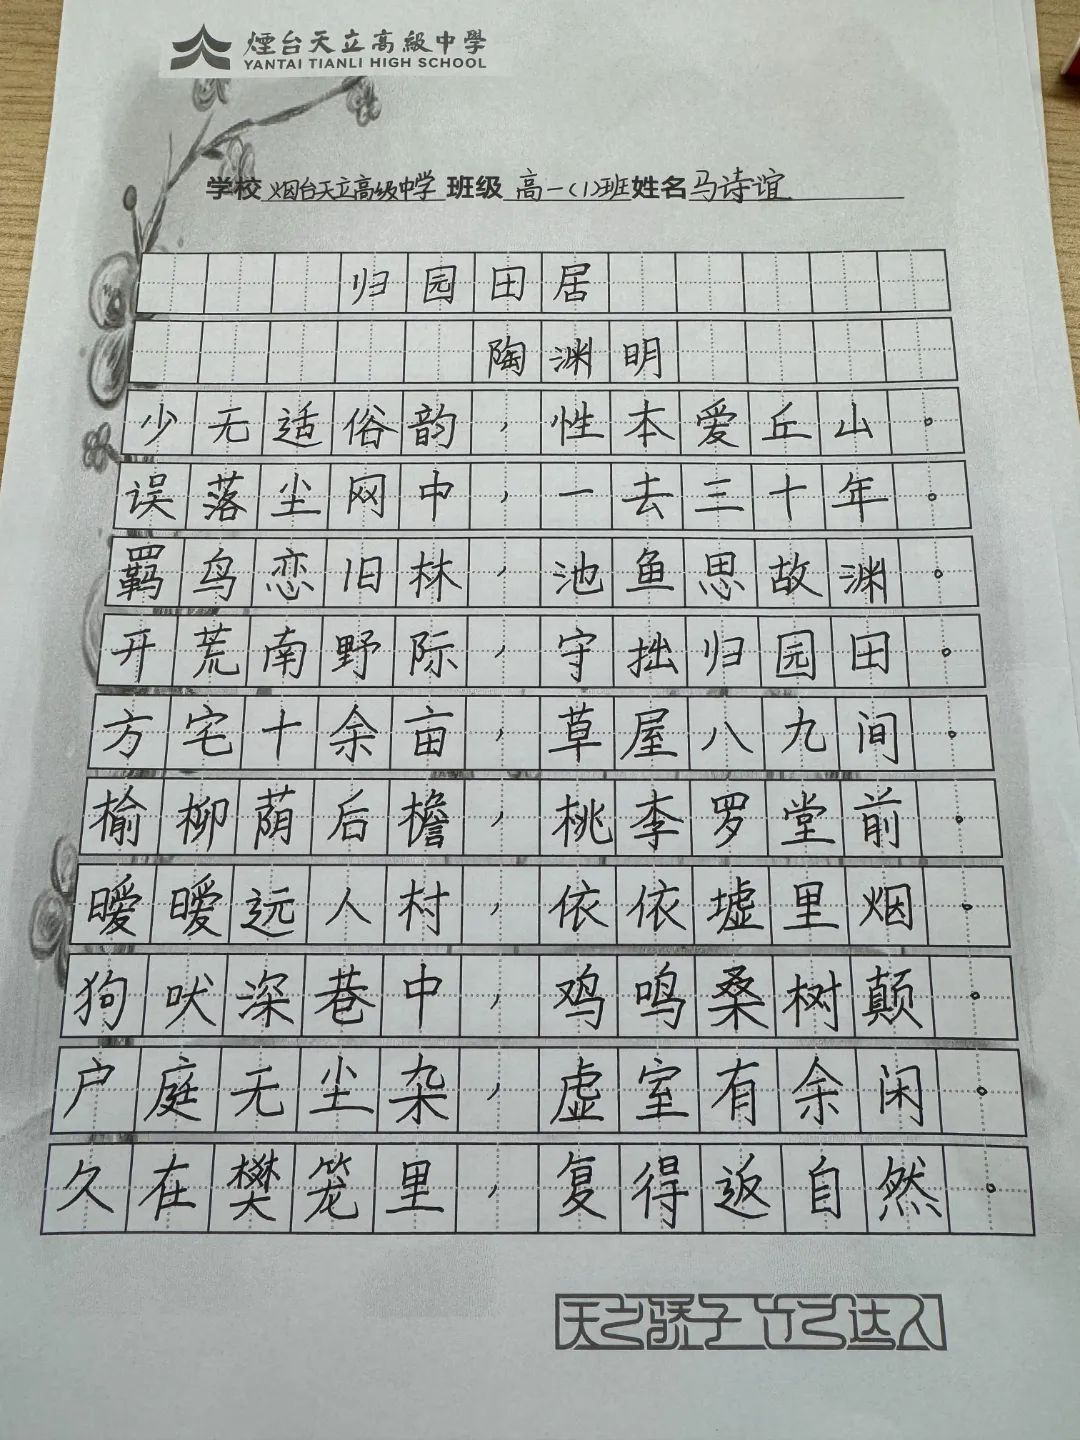 煙台天立高級中學
YANTAI TIANLI HIGH SCHOOL
学校 烟台天立高级中学 班级 高一(1)班 姓名 马诗谊
归园田居
陶渊明
少无适俗韵，性本爱丘山。
误落尘网中，一去三十年。
羁鸟恋旧林，池鱼思故渊。
开荒南野际，守拙归园田。
方宅十余亩，草屋八九间。
榆柳荫后檐，桃李罗堂前。
暧暧远人村，依依墟里烟。
狗吠深巷中，鸡鸣桑树颠。
户庭无尘杂，虚室有余闲。
久在樊笼里，复得返自然。
天之骄子 立己达人